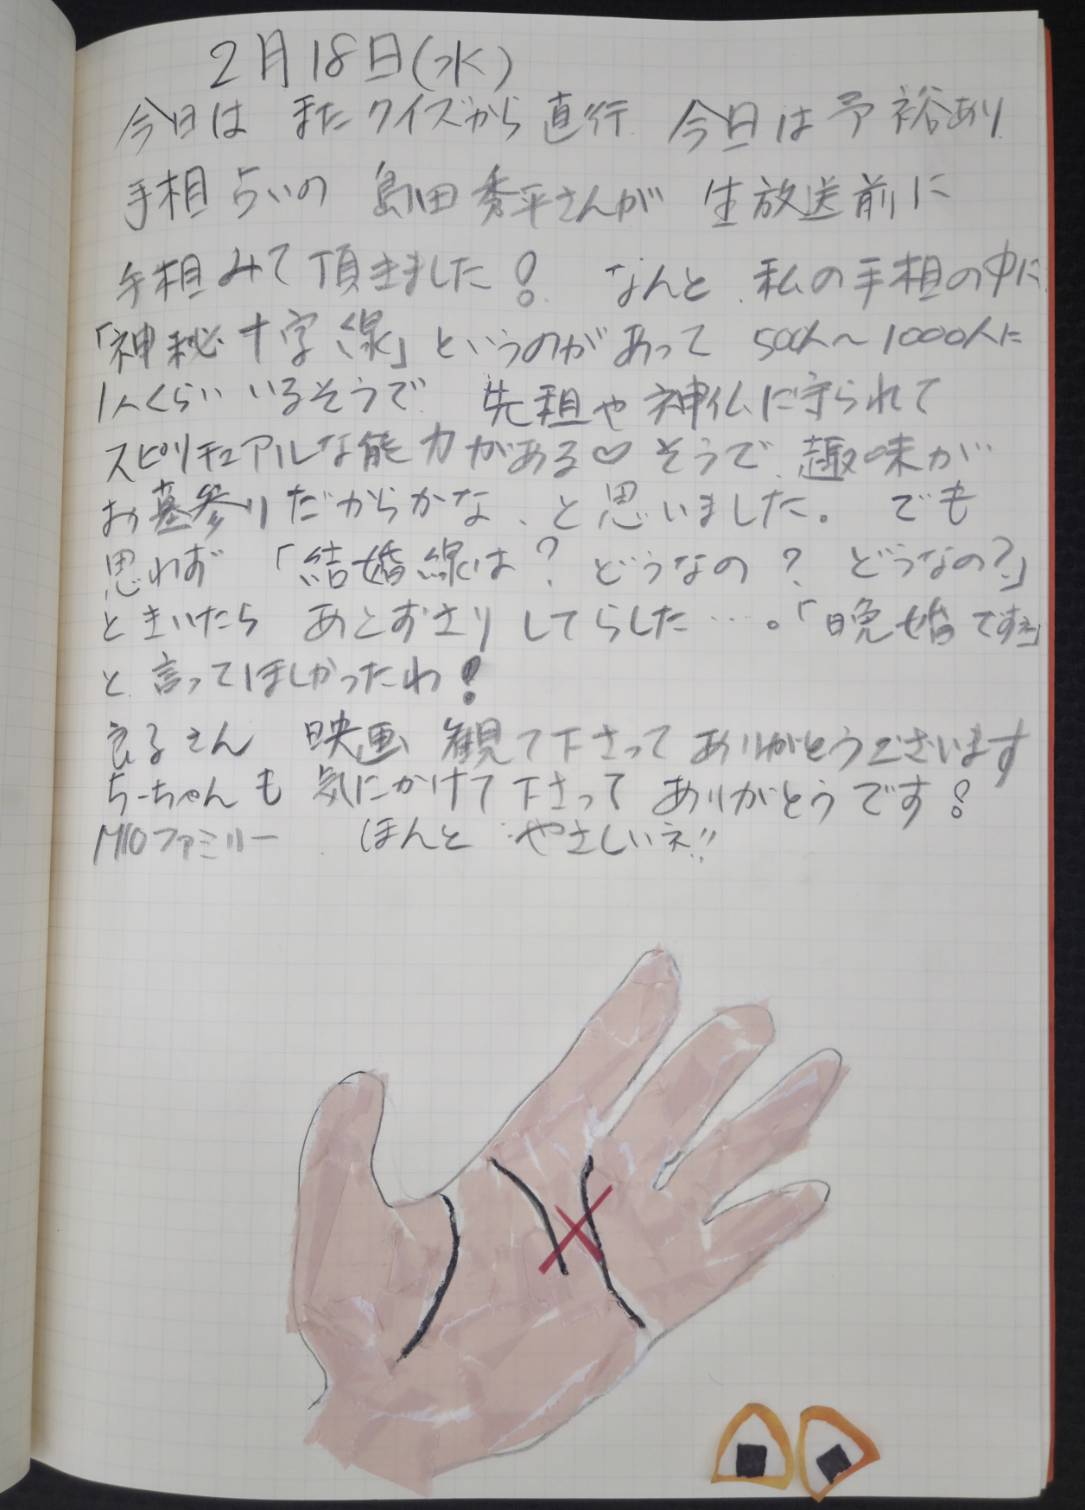 2月18日(水)
今日は またクイズから 直行 今日は予裕あり
手相占いの 島田秀平さんが 生放送前に
手相みて頂きました! なんと、私の手相の中に
「神秘十字線」というのがあって 500人〜1000人に
1人くらい いるそうで 先祖や神仏に守られて
スピリチュアルな能力がある♡そうで、趣味が
お墓参りだからかな、と思いました。 でも
思わず 「結婚線は? どうなの? どうなの?」
ときいたら あとずさりしてらした…。「晩婚ですネ」
と 言ってほしかったわ!
さん 映画 観て下さって ありがとうございます
ちーちゃんも 気にかけて下さって ありがとうです!
MIOファミリー ほんと やさしいネ!!